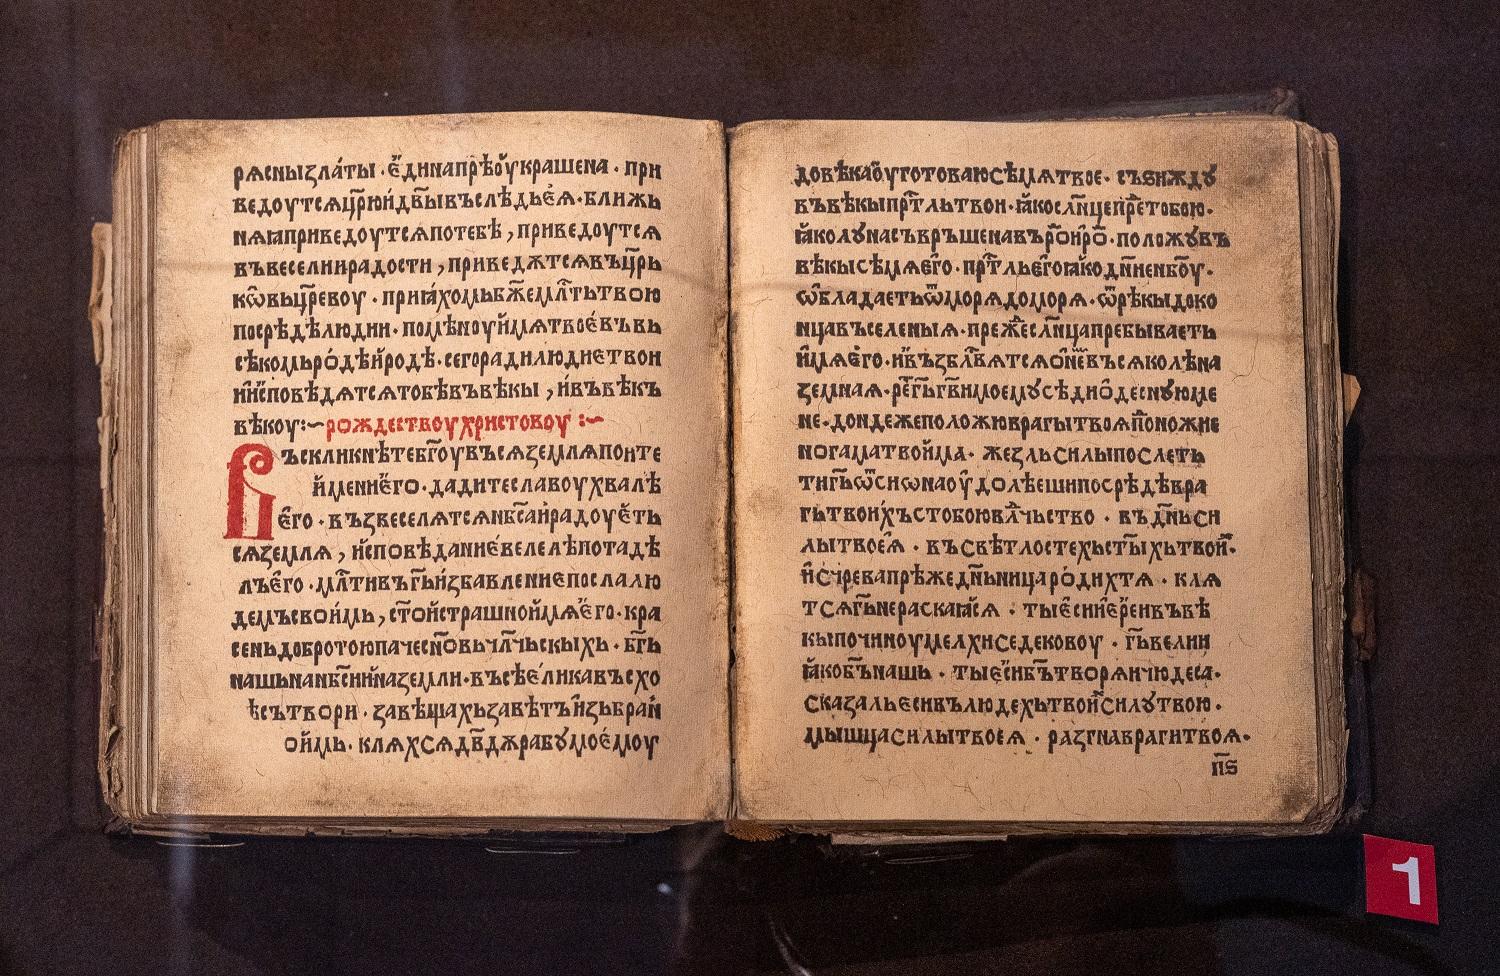 рѧсныꙁла́ты · е҆динапрѣоу҆крашена · при
ведоутсѧцр҃юидв҃ывъслѣдьеѧ · ближь
нѧꙗприведоутсѧпотебѣ , приведоутсѧ
въвеселиирадости , приведѫтсѧвъцр҃ь
кѡвьцр҃евоу · приꙗхомьбж҃емлⷭ҇тьтвою
посрѣдѣлюдии · помѣноуимѧтвоевъвь
сѣкомьро́дѣиродѣ · сегорадилюдиетвои
иисповѣдѧтсѧтобѣвъвѣкы , ивъвѣкъ
вѣкоу:~рождествоухристовоу :~
Въскликнѣтебг҃оувъсѧꙁемлѧпоите
имениего · дадитеславоухвалѣ
его · въꙁвеселѧтсѧнб҃саирадоуеть
сѧꙁемлѧ , исповѣданиевелелѣпотадѣ
лъего · млⷭ҇тивъгь҃иꙁбавлениепослалю
демъсвоимь , ст҃оистрашноимѧего · кра
сеньдобротоюпачесн҃овьчл҃чьскыхь · бг҃ь
нашьнанб҃сиинаꙁемли · въсѣеликавъсхо
ѣсътвори · ꙁавѣщахьꙁавѣтъиꙁьбран
оимь · клѧхсѧдв҃дѫрабꙋмоемоу
довѣкаоуготоваюсѣмѧтвое · съꙁиждꙋ
въвѣкыпрⷭ҇тльтвои · ꙗкослн҃цепрⷣетобою ·
ꙗколꙋнасъвръшенавъроⷣиро · положꙋвъ
вѣкысѣмѧего · прⷭ҇тльегоꙗкодн҃иенбоу ·
ѡбладаетьѿморѧдоморѧ · ѿрѣкыдоко
нцавъселеныѧ · прежⷣеслн҃цапребываеть
имѧего · ивъꙁбл҃вѧтсѧонⷨ҇евъсѧколѣна
ꙁемнаѧ · реⷱ҇гь҃гв҃имоемꙋсѣдиодеснꙋюме
не · дондежеположюврагытвоѧпоⷣножие
ногаматвоима · жеꙁльсилыпослеть
тигь҃ѿсиѡнаоудолѣешипосрѣдѣвра
гьтвоихъстобоювлⷣчьство · въдн҃ьси
лытвоеѧ · въсвѣтлостехьст҃ыхьтвоиⷯ ·
исчревапрѣжедн҃ьницародихтѧ · клѧ
тсѧгь҃нераскаꙗсѧ · тыесииереивъвѣ
кыпочиноумелхиседековоу · гь҃велии
ꙗкобъ҃нашь · тыесибъ҃творѧичюдеса ·
скаꙁальесивълюдехьтвоиⷯсилꙋтвою ·
мышцасилытвоеѧ · раꙁгнаврагитвоѧ ·
п҃ѕ
1